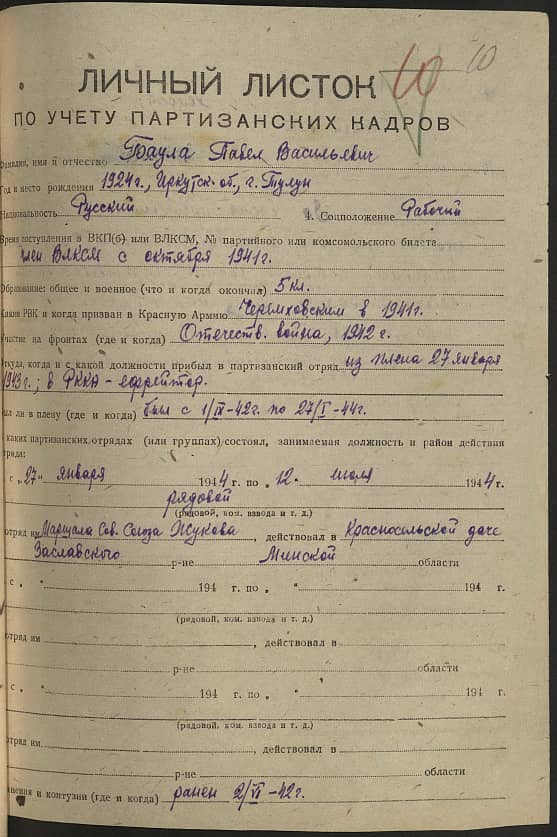 10
10
ЛИЧНЫЙ ЛИСТОК
ПО УЧЕТУ ПАРТИЗАНСКИХ КАДРОВ
Фамилия, имя и отчество Баула Павел Васильевич
Год и место рождения 1924г., Иркутск. об., г. Тулун
Национальность Русский 4. Соцположение Рабочий
Время вступления в ВКП(б) или ВЛКСМ, № партийного или комсомольского билета
член ВЛКСМ с октября 1941г.
Образование: общее и военное (что и когда окончил) 5 кл.
Каким РВК и когда призван в Красную Армию Черемховским в 1941г.
Участие на фронтах (где и когда) Отечеств. война, 1942 г.
Откуда, когда и с какой должности прибыл в партизанский отряд из плена 27 января
1943г.; в РККА - ефрейтор.
был ли в плену (где и когда) был с 1/IV-42г. по 27/I-44г.
каких партизанских отрядах (или группах) состоял, занимаемая должность и район действия
отряда:
с „27" января 1944 г. по „12" июля 1944 г.
рядовой
(рядовой, ком. взвода и т. д.)
отряд им Маршала Сов. Союза Жукова, действовал в Красносельской даче
Заславского р-не Минской области
с „ " 194 г. по „ " 194 г.
(рядовой, ком. взвода и т. д.)
отряд им , действовал в
р-не области
с „ " 194 г. по „ " 194 г.
(рядовой, ком. взвода и т. д.)
отряд им. , действовал в
р-не области
ранения и контузии (где и когда) ранен 2/VI-42г.